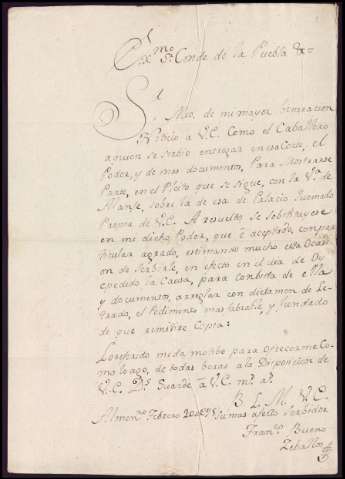 Exmo. Sr. Conde de la Puebla &a
Sr.
Mio, de mi mayor
a V.E. Como el Caballero
a quien se sirbio entregar en esa Corte, el
Poder, y de mas documentos, Para mostrarse
Parte, en el Pleito que se sigue, con la Va. de
sobre la de esa de Palacio
de V.E. A resuelto se sobstituyese
en mi dicho Poder, que è aceptado, con par
ticular agrado, estimando mucho esta Ocasi
on de Serbirle, en efecto en el dia de Oy
è pedido la Causa, para con bista de ella
y documentos, arreglar con dictamen de Le-
trado, el Pedimento mas fabrable, y fundado
de que remitire Copia:
Lo referido me da motibo para ofrecerme Co
mo lo ago, de todas beras a la Disposicion de
V.E. Ds. Guarde a V.E. ms. as.
Febrero 20 de
B. L. M. V.E.
Su mas afecto Serbidor
Franco. Bueno
Zeballos